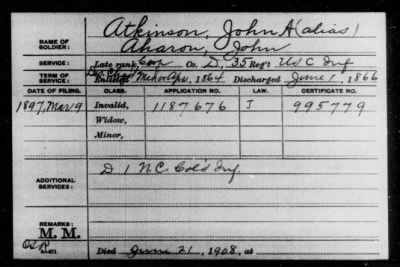 Atkinson, John A (alias)
NAME OF SOLDIER: Aharon, John
SERVICE: Late rank Corp Co. D, 35 Reg't U S C Inf
TERM OF SERVICE: Enlisted Apr, 1864 Discharged June 1, 1866
DATE OF FILING. CLASS. APPLICATION NO. LAW. CERTIFICATE NO.
1897, Mar. 9 Invalid, 1187676 J 995779
Widow,
Minor,
ADDITIONAL SERVICES: D 1 N.C. Col'd Inf.
REMARKS:
M. M.
Died June 21, 1908, at